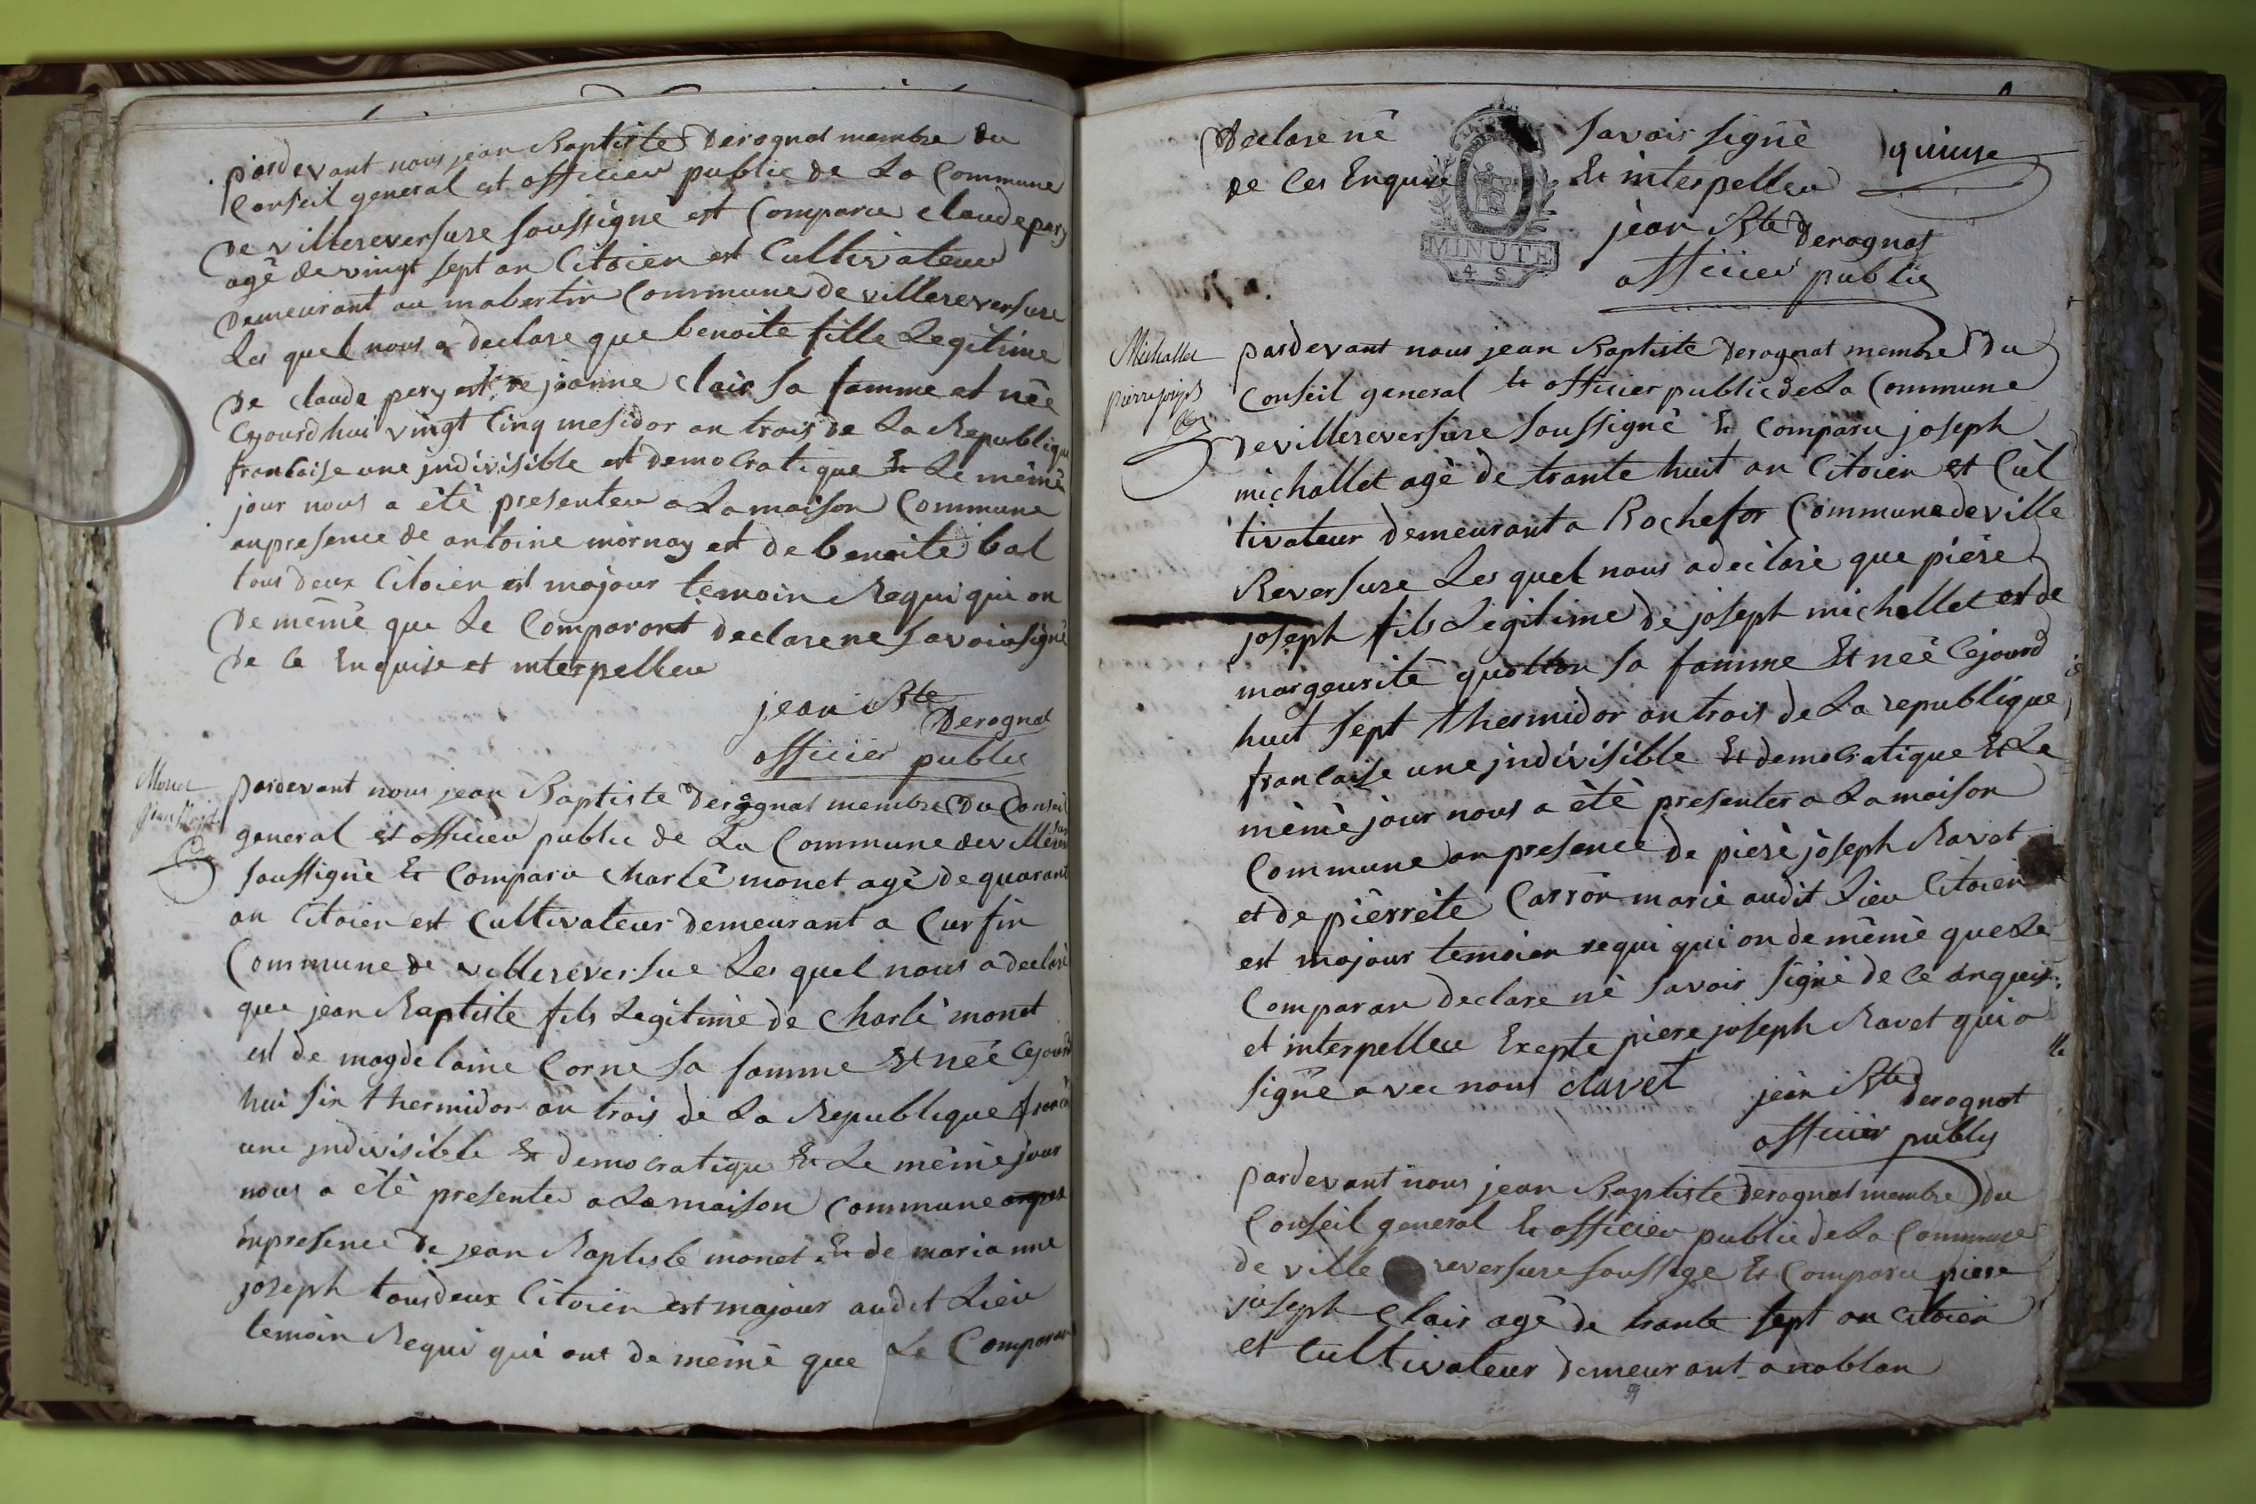 pardevant nous jean Baptiste Derognat membre du
Conseil general est officier public de La Commune
De villereversure soussigné est Comparu claude pery
agé de vingt sept an Citoien est Cultivateur
Demeurant au mabertin Commune de villereversure
Les quel nous a declare que benoite fille Legitime
De claude pery est de joanne clair sa famme et née
Cejourdhui vingt Cinq mesidor an trois de La Republique
francaise une jndivisible est democratique Et Le mémé
jour nous a été presenteu a La maison Commune
anpresence de antoine mornay est de benoite bal
tous deux Citoien est majour temoin Requi qui on
De mémé que Le Comparant declare ne savoir signé
De Ce Enquise et interpelleu
jean Bte
Derognat
officier public
Monet
jean Bapt
pardevant nous jean Baptiste derognat membre Du Conseil
general est officier public de La Commune de villerever
sur
soussigné Et Comparu charlé monet agé de quarant
an Citoien est Cultivateur demeurant a Curfin
Commune de villereversue Les quel nous a declaré
que jean Baptiste fils Legitimé de charlé monet
est de magdelaine Corne sa famme Et née Cejourd
hui six thermidor an trois de La Republique franca
une jndivisible Et democratique Et Le mémé jour
nous a été presenteu a La maison Commune anpres
Enpresence de jean Baptiste monet Et de marianne
joseph tousdeux Citoien est majour audit Lieu
temoin Requi qui ont de mémé que Le Comparan
Declare né savoir signé quinse
de Ces Enquise Et interpelleu
MINUTE
4 S
jean Bte Derognat
officier public
Michallet
pierre joseph
pardevant nous jean Baptiste derognat membre Du
Conseil general Et officier public de La Commune
De villereversure soussigné Et Comparu joseph
michallet agé de trante huit an Citoien est Cul
tivateur demeurant a Rochefor Commune de ville
Reversure Les quel nous a declaré que piére
joseph fils Legitime de joseph michallet est de
margeurité quotton sa famme Et née Cejourd
huit sept thermidor an trois de La republique
francaise une jndivisible Et democratique Et Le
mémé jour nous a été presenter a La maison
Commune anpresence de piéré joseph Ravet
et de piérrété Carron marié audit Lieu Citoien
est majour temoien requi qui on de mémé que Le
Comparan declare né savoir signé de Ce anquise
et interpelleu Exepte piere joseph Ravet qui a
signé avec nous clavet
jean Bte
derognat
officier public
pardevant nous jean Baptiste derognat membre Du
Conseil general Et officier public de La Commune
de ville reversure soussige Et Comparu piere
joseph clair agé de trante sept an citoien
et Cultivateur demeurant a noblan